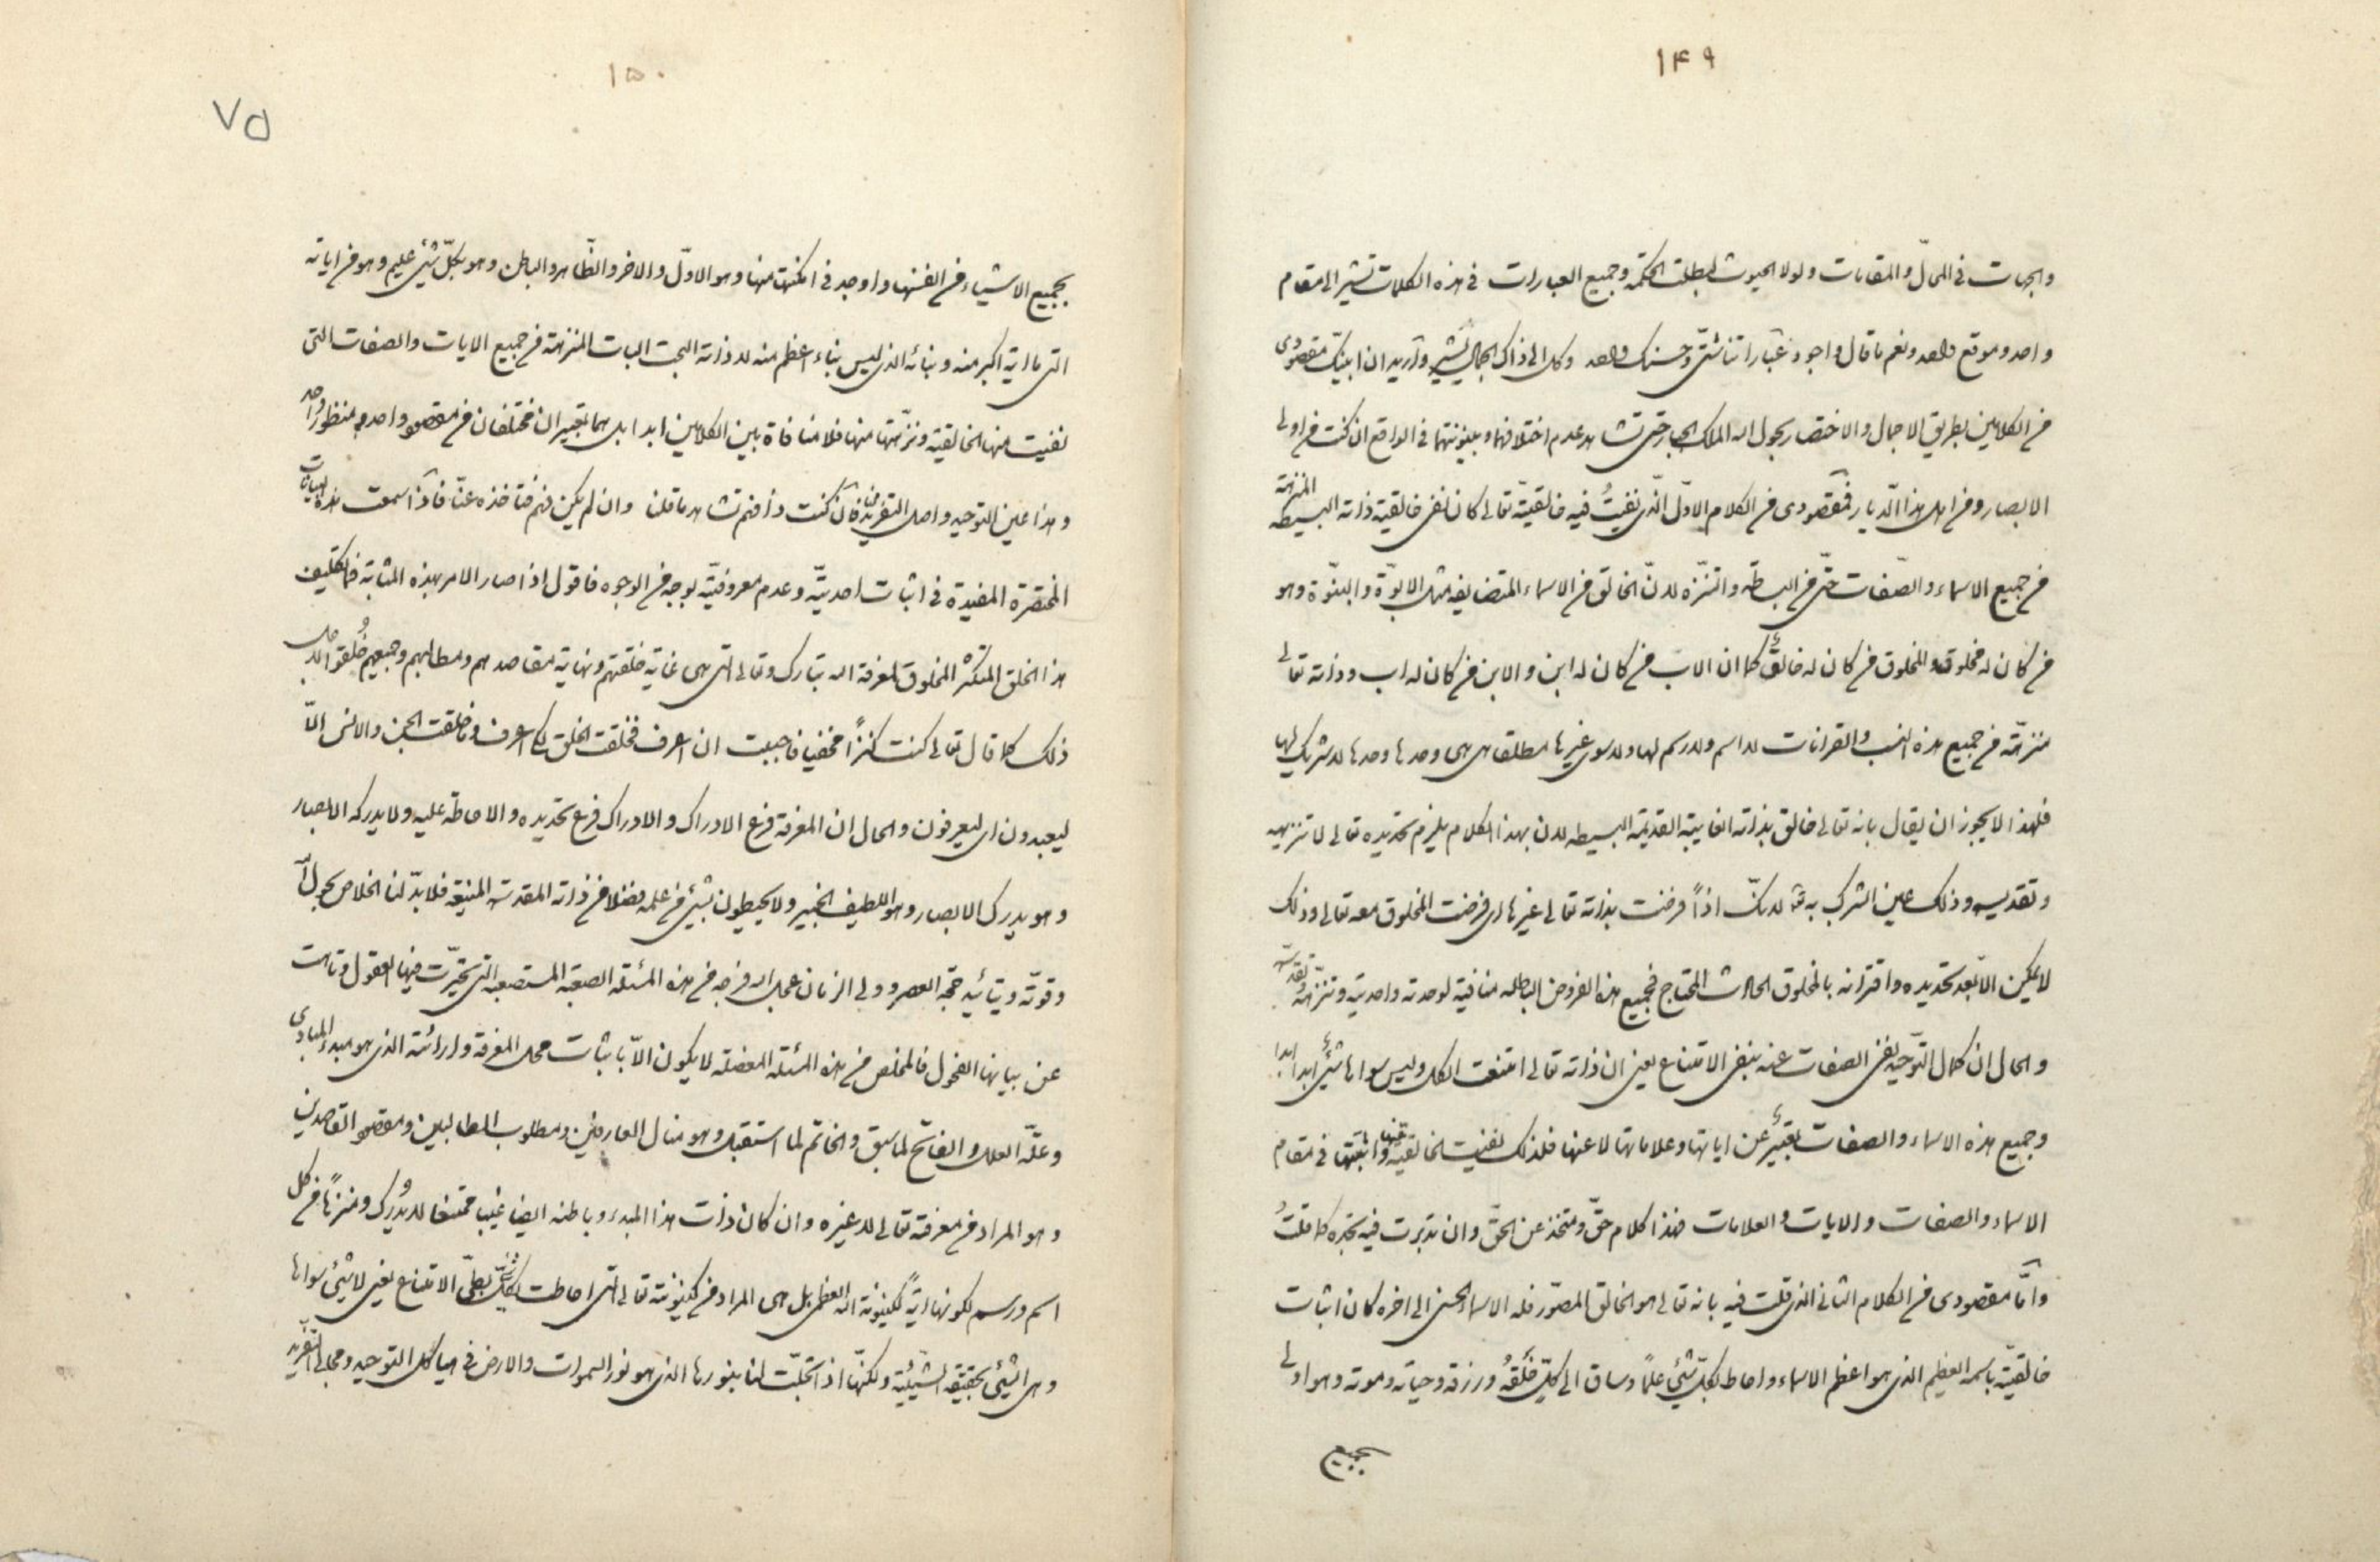 ١۴٩
والجهات فی المحالّ والمقامات ولولا الحیوث لبطلت الحکمة وجمیع العبارات فی هذه الکلمات تشیر الی مقام
واحد وموقع واحد ونعم ما قال واجود عباراتنا شتّی وحسنک واحد وکل الی ذاک الجمال یشیر وارید ان ابیّنک مقصودی
من الکلامین بطریق الاجمال والاختصار بحول الله الملک الجبار حتی تشاهد عدم اختلافهما وبینونتهما فی الواقع ان کنت من اولی
الابصار ومن اهل هذا الدّیار فمقصودی من الکلام الاوّل الّذی نفیتُ فیه خالقیّته تعالی کان نفی خالقیة ذاته البسیطه المنزهة
من جمیع الاسماء والصّفات حتّی من البساطة والتنزّه لانّ الخالق من الاسماء المتضایفه مثل الابوّة والبنوّة وهو
من کان له مخلوق والمخلوق من کان له خالقٌ کما ان الاب من کان له ابن والابن من کان له اب وذاته تعالی
منزهّة من جمیع هذه النسب والقرانات لا اسم ولا رسم لها ولا سوی غیرها مطلقا بل هی وحدها وحدها لا شریک لها
فلهذا لا یجوز ان یقال بانه تعالی خالق بذاته الغایبة القدیمة البسیطه لان بهذا الکلام یلزم تحدیده تعالی لا تنزیهه
وتقدیسه وذلک عین الشرک به لانّک اذاً فرضت بذاته تعالی غیرها ای فرضت المخلوق معه تعالی وذلک
لا یمکن الّا بعد تحدیده واقترانه بالمخلوق الحادث المحتاج فجمیع هذه الفروض الباطله منافیة لوحدته واحدیته وتنزهّه وتقدسه
والحال ان کمال التّوحید نفی الصفات عنه بنفی الامتناع یعنی ان ذاته تعالی امتنعت الکل ولیس سواها شیئٌ ابدا ابدا
وجمیع هذه الاسماء والصفات یعبّر عن ایاتها وعلاماتها لا عنها فلذلک نفیت الخالقیة عنها واثبتّها فی مقام
الاسماء والصفات والایات والعلامات فهذا کلام حقّ ومتّخذ عن الحقّ وان تدبرت فیه تجده کما قلتُ
وامّا مقصودی من الکلام الثانی الذی قلت فیه بانه تعالی هو الخالق المصوّر فله الاسماء الحسنی الی اخره کان اثبات
خالقیّته باسمه العظیم الذی هو اعظم الاسماء واحاط بکلّ شیئ علماً وساق الی کلّ خلقهُ ورزقه وحیاته وموته وهو اولی
بجمیع
١۵٠
٧۵
بجمیع الاشیاء من انفسها واوجد فی امکنتها منها وهو الاوّل والاخر والظّاهر والباطن وهو بکلّ شیئ علیم وهو من ایاته
التی ما ایة اکبر منه ونبائه الذی لیس نباء اعظم منه لا ذاته البحت البات المنزهة من جمیع الایات والصفات التی
نفیت منها الخالقیة ونزّهتها منها فلا منافاة بین الکلامین ابدا بل هما تعبیران مختلفان من مقصود واحد ومنظور واحد
وهذا عین التوحید واصل التفرید فان کنت ذا فهم تشاهد ما قلنا وان لم یکن فهم فتاخذه عنّا فاذا سمعت هذه البیانات
المختصرة المفیدة فی اثبات احدیّته وعدم معروفیّته بوجه من الوجوه فاقول اذا صار الامر بهذه المثابة فما تکلیف
هذا الخلق المتکثّر المخلوق لمعرفة الله تبارک وتعالی التی هی غایة خلقتهم ونهایة مقاصدهم ومطالبهم وجمیعهم خُلقوا لاجل
ذلک کما قال تعالی کنت کنزاً مخفیا فاحببت ان اعرف فخلقت الخلق لکی اعرف وما خلقت الجن والانس الّا
لیعبدون ای لیعرفون والحال ان المعرفة فرع الادراک والادراک فرع تحدیده والاحاطة علیه ولا یدرکه الابصار
وهو یدرک الابصار وهو اللطیف الخبیر ولا یحیطون بشیئ من علمه فضلا من ذاته المقدسة المنیعة فلا بدّ لنا الخلاص بحول الله
وقوّته وبتائید حجّة العصر وولی الزمان عجل الله فرجه من هذه المسئلة الصعبة المستصعبه التی تحیّرت فیها العقول وتاهت
عن بیانها الفحول فالمخلص من هذه المسئلة المعضلة لا یکون الّا باثبات محل المعرفة واراءته الذی هو مبدء المبادی
وعلّة العلل والفاتح لما سبق والخاتم لما استقبل وهو منال العارفین ومطلوب الطالبین ومقصود القاصدین
وهو المراد من معرفة تعالی لا غیره وان کان ذات هذا المبدء وباطنه ایضا غیب ممتنعا لا یُدرک ومنزهاً من کل
اسم ورسم لکونها ایةً لکینونة الله العظمی بل هی المراد من کینونته تعالی التی احاطت بکلّ شیئ بطیّ الامتناع یعنی لا شیئ سواها
وهی الشیئ بحقیقة الشّیئیة ولکنّها اذا تجلّت لنا بنورها الذی هو نور السموات والارض فی هیاکل التوحید ومجالی التفرید